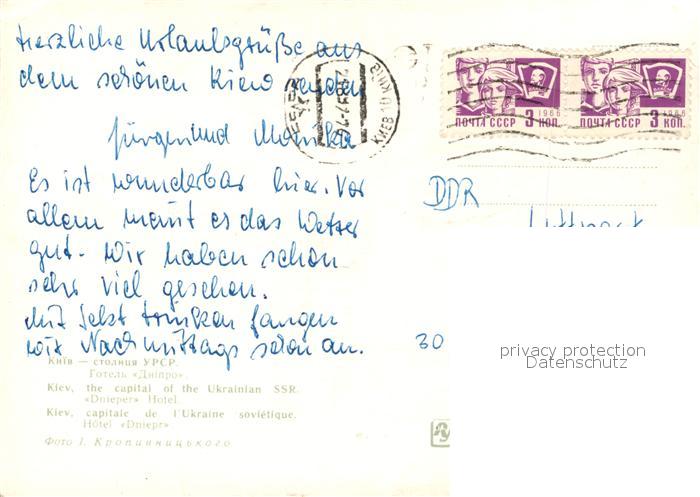 Herzliche Urlaubsgrüße aus
dem schönen Kiew senden
Jürgen und Monika
Es ist wunderbar hier. Vor
allem meint es das Wetter
gut. Wir haben schon
sehr viel gesehen.
Mit Sekt trinken fangen
wir Nachmittags schon an.
ПОЧТА СССР 3 КОП. 1966
ПОЧТА СССР 3 КОП. 1966
КИЕВ
DDR
Luftpost
30
privacy protection
Datenschutz
Київ — столиця УРСР.
Готель «Дніпро».
Kiev, the capital of the Ukrainian SSR.
«Dnieper» Hotel.
Kiev, capitale de l'Ukraine soviétique.
Hôtel «Dniepr»
Фото І. Кропивницького